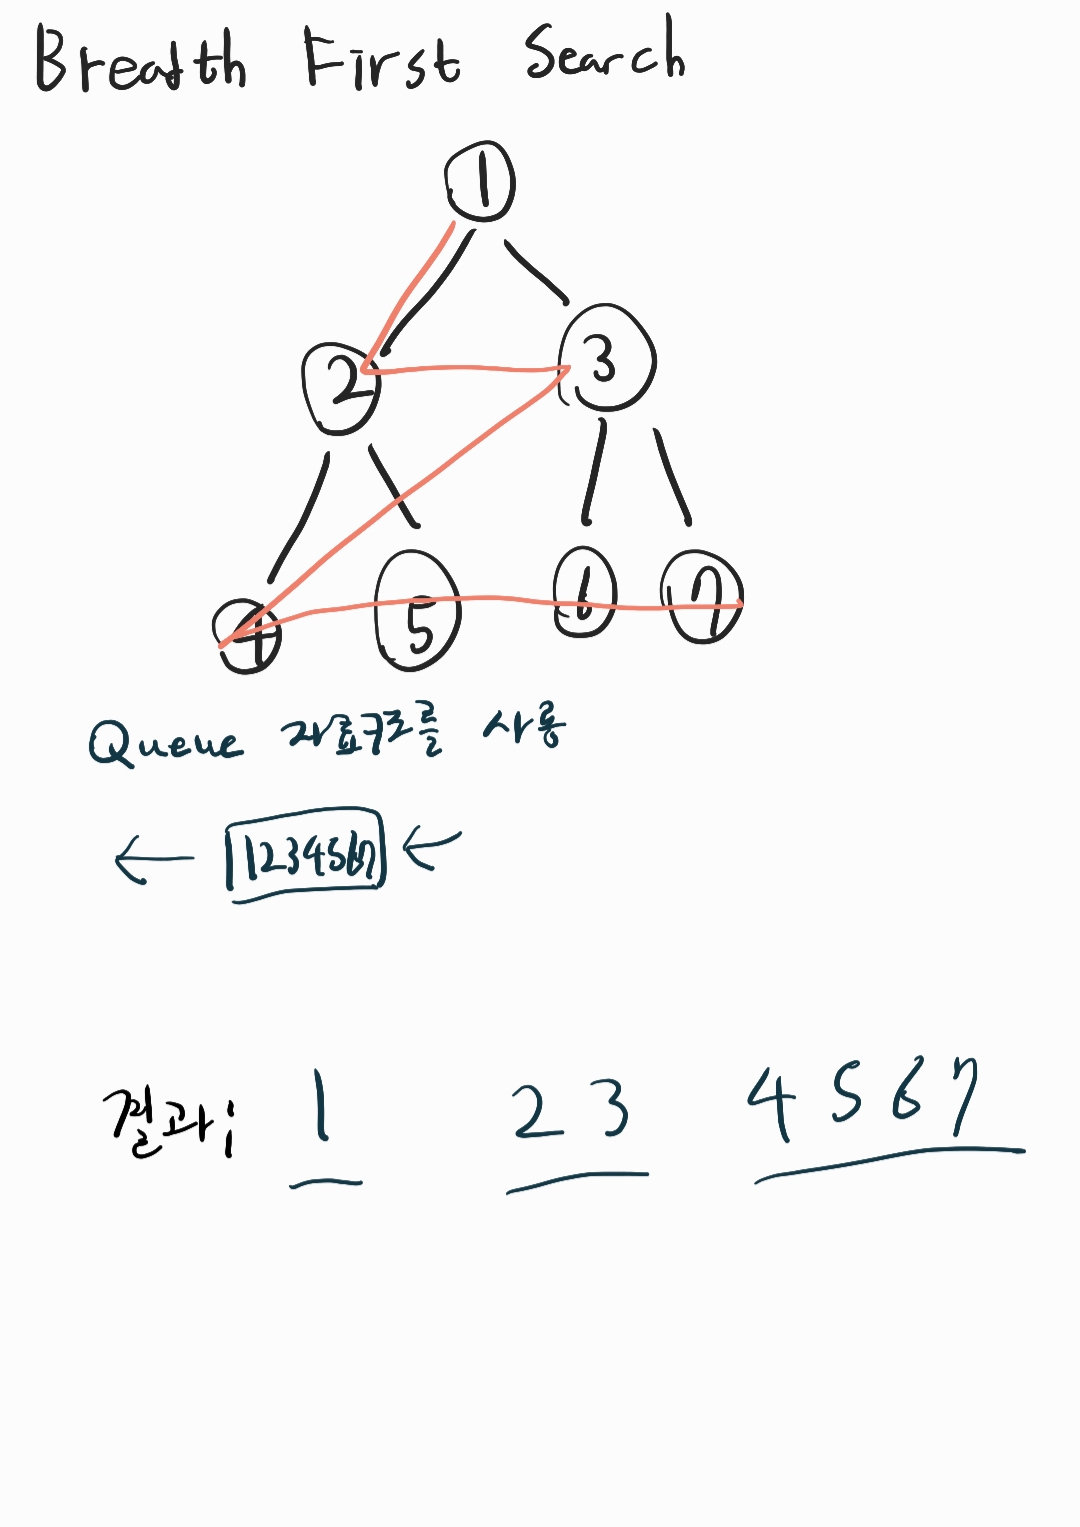 Breadth First Search
1
2 3
4 5 6 7
Queue 자료구조를 사용
1234567
결과; 1 23 4567